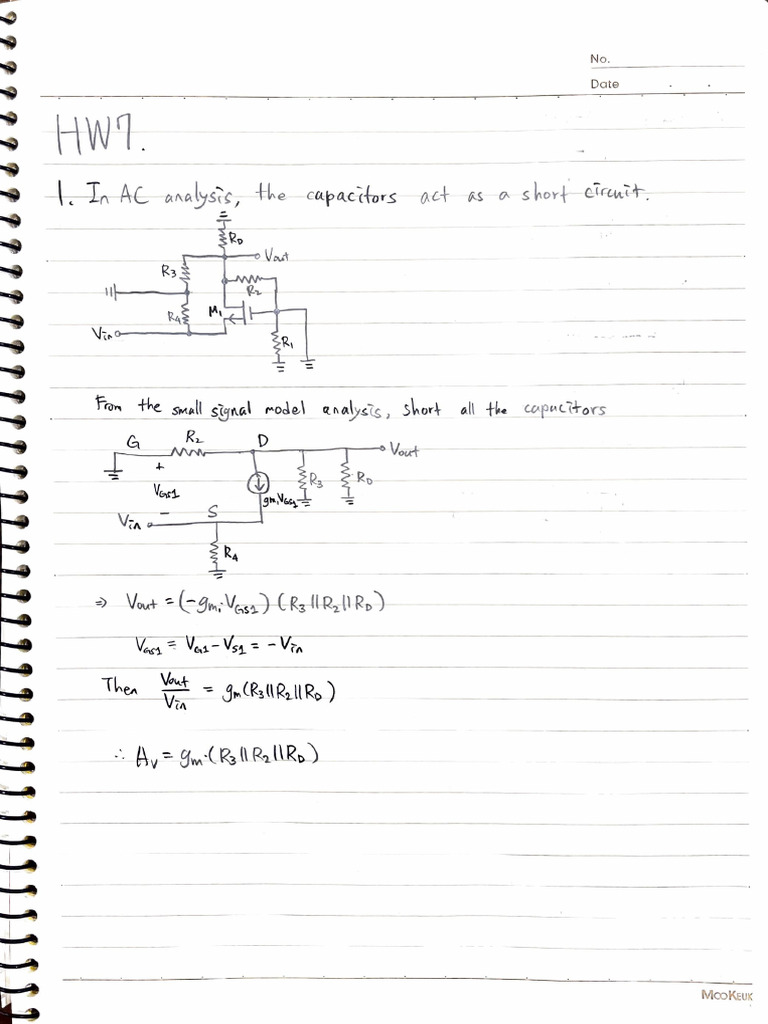 No.
Date . .
HW7.
1. In AC analysis, the capacitors act as a short circuit.
RD
Vout
R3
R2
R4
M1
Vin
R1
From the small signal model analysis, short all the capacitors
G R2 D
Vout
+
VGS1
gm1VGS1
R3
RD
-
Vin S
R4
⇒ Vout = (-gm1VGS1) (R3 || R2 || RD)
VGS1 = VG1 - VS1 = -Vin
Then Vout/Vin = gm(R3 || R2 || RD)
∴ Av = gm·(R3 || R2 || RD)
MOOKEUK